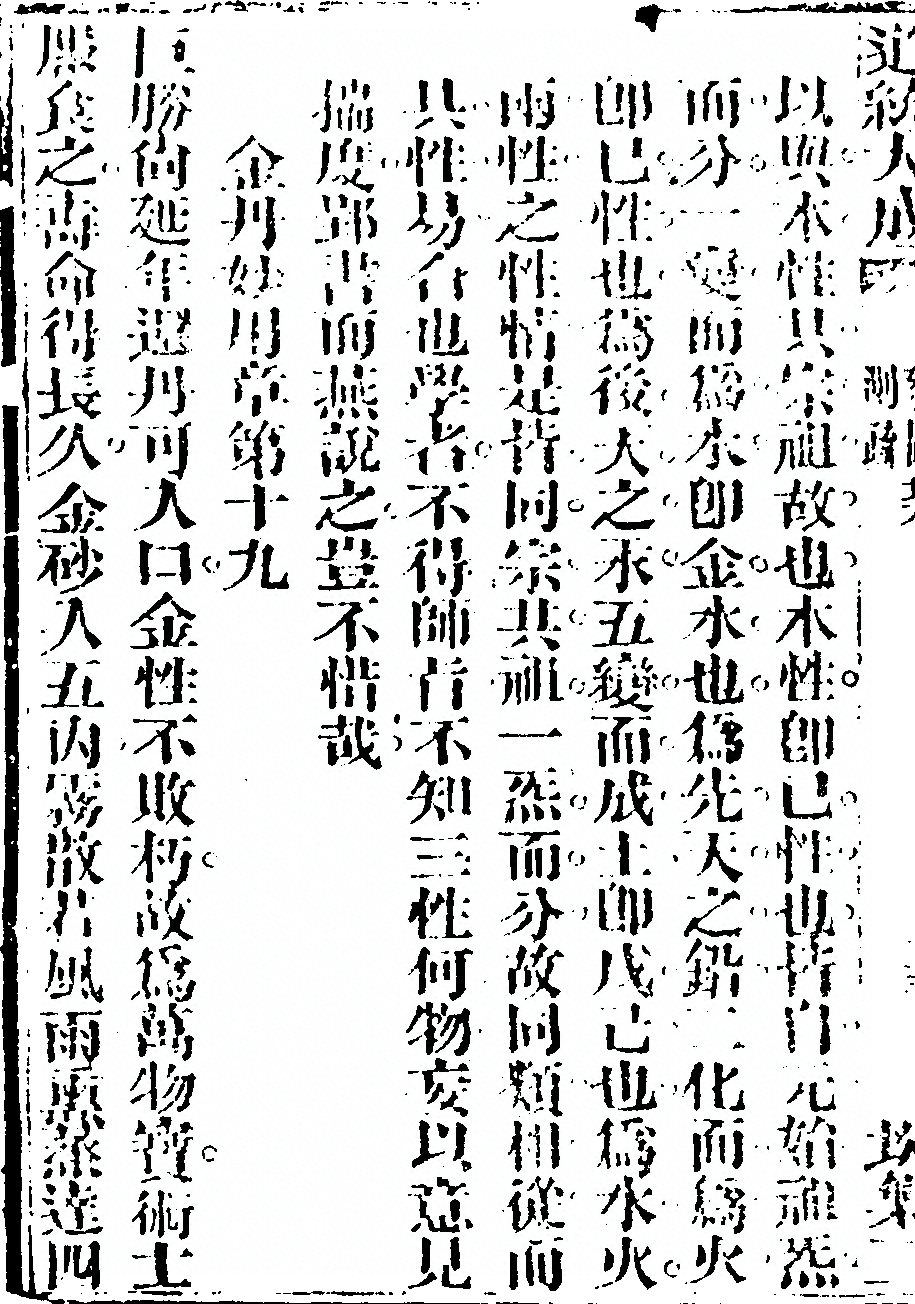 道統大成 測疏 坎集二
以與木性共宗祖故也木性卽己性也皆自元始祖炁
而分一變而爲水卽金水也爲先天之鉛二化而爲火
卽己性也爲後天之汞五變而成土卽戊己也爲水火
兩性之性情是皆同宗共祖一炁而分故同類相從而
其性易合也學者不得師旨不知三性何物妄以意見
揣度郢書而燕說之豈不惜哉
金丹妙用章第十九
巨勝尚延年還丹可入口金性不敗朽故爲萬物寶術士
服食之壽命得長久金砂入五內霧散若風雨熏蒸達四